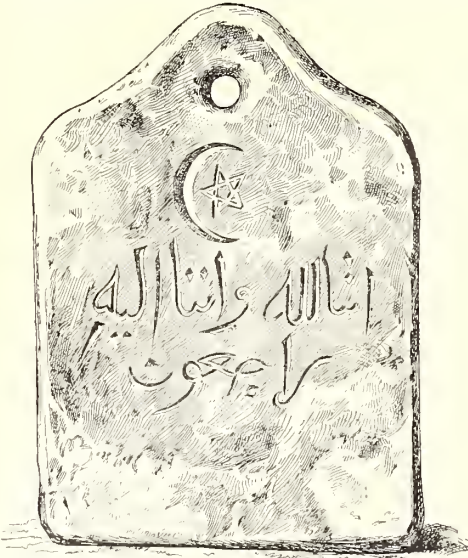 انا لله وانا اليه
راجعون